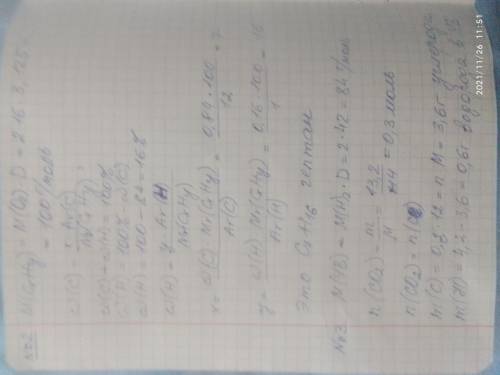 №2 M(CxHy) = M(O₂) · D = 2 · 16 · 3,125 =
= 100 г/моль
ω(C) = x Ar(C) / Mr(CxHy)
ω(C) + ω(H) = 100%
ω(H) = 100% - ω(C)
ω(H) = 100 - 84 = 16%
ω(H) = y Ar(H) / Mr(CxHy)
x = ω(C) Mr(CxHy) / Ar(C) = 0,84 · 100 / 12 = 7
y = ω(H) Mr(CxHy) / Ar(H) = 0,16 · 100 / 1 = 16
Это C₇H₁₆ гептан
№3. M(УВ) = M(H)₂ · D = 2 · 42 = 84 г/моль
n(CO₂) = m / M = 13,2 / 44 = 0,3 моль
n(CO₂) = n(C)
m(C) = 0,3 · 12 = n M = 3,6 г углерода
m(H) = 4,2 - 3,6 = 0,6 г водорода в УВ
2021/11/26 11:51